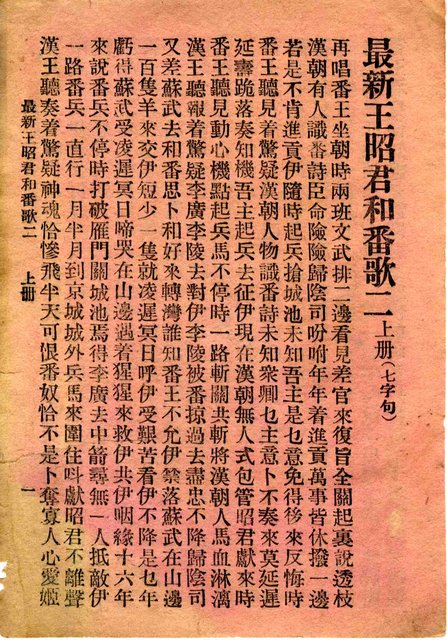 最新王昭君和番歌二上册(七字句)
再唱番王坐朝時兩班文武排二邊看見差官來復旨全關起裏說透枝
漢朝有人識番詩臣命險險歸陰司吩咐年年着進貢萬事皆休撥一邊
若是不肯進貢伊隨時起兵搶城池未知吾主是乜意免得後來反悔時
番王聽見着驚疑漢朝人物識番詩未知衆卿乜主意卜不奏來莫延遲
延壽跪落奏知機吾主起兵去征伊現在漢朝無人式包管昭君獻來時
番王聽見動心機點起兵馬不停時一路斬關共斬將漢朝人馬血淋漓
漢王聽報着驚疑李廣李陵去對伊李陵被番掠過去盡忠不降歸陰司
又差蘇武去和番思卜和好來轉灣誰知番王不允伊禁落蘇武在山邊
一百隻羊來交伊短少一隻就凌遲冥日呼伊受艱苦看伊不降是乜年
虧得蘇武受凌遲冥日啼哭在山邊遇着猩猩來救伊共伊咽緣十六年
來說番兵不停時打破雁門關城池焉得李廣去中箭尋無一人抵敵伊
一路番兵一直行一月半月到京城城外兵馬來圍住叫獻昭君不離聲
漢王聽奏着驚疑神魂恰慘飛半天可恨番奴恰不是卜奪寡人心愛姬
最新王昭君和番歌二 上册 一